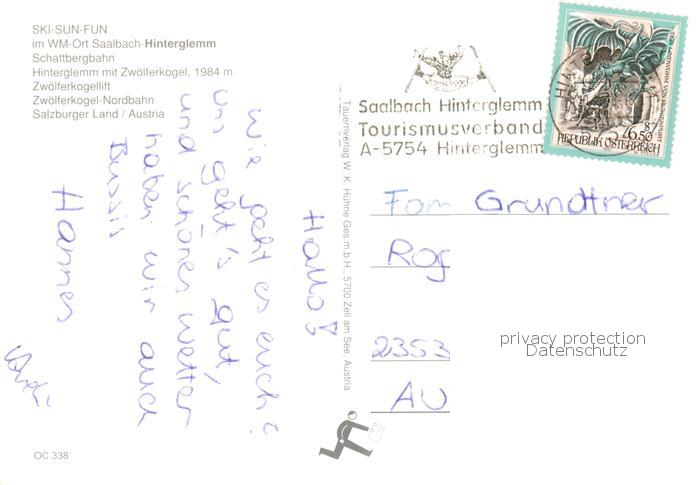 SKI-SUN-FUN
im WM-Ort Saalbach-Hinterglemm
Schattbergbahn
Hinterglemm mit Zwölferkogel, 1984 m
Zwölferkogellift
Zwölferkogel-Nordbahn
Salzburger Land / Austria
Saalbach Hinterglemm
Tourismusverband
A-5754 Hinterglemm
6.50
REPUBLIK ÖSTERREICH
Tauernverlag W. K. Hühne Ges.m.b.H., 5700 Zell am See, Austria
Hallo!
Wie geht es euch?
uns geht's gut,
und schönes wetter
haben wir auch
Bussis
Hannes
Fam Grundtner
2353
AU
privacy protection
Datenschutz
OC 338